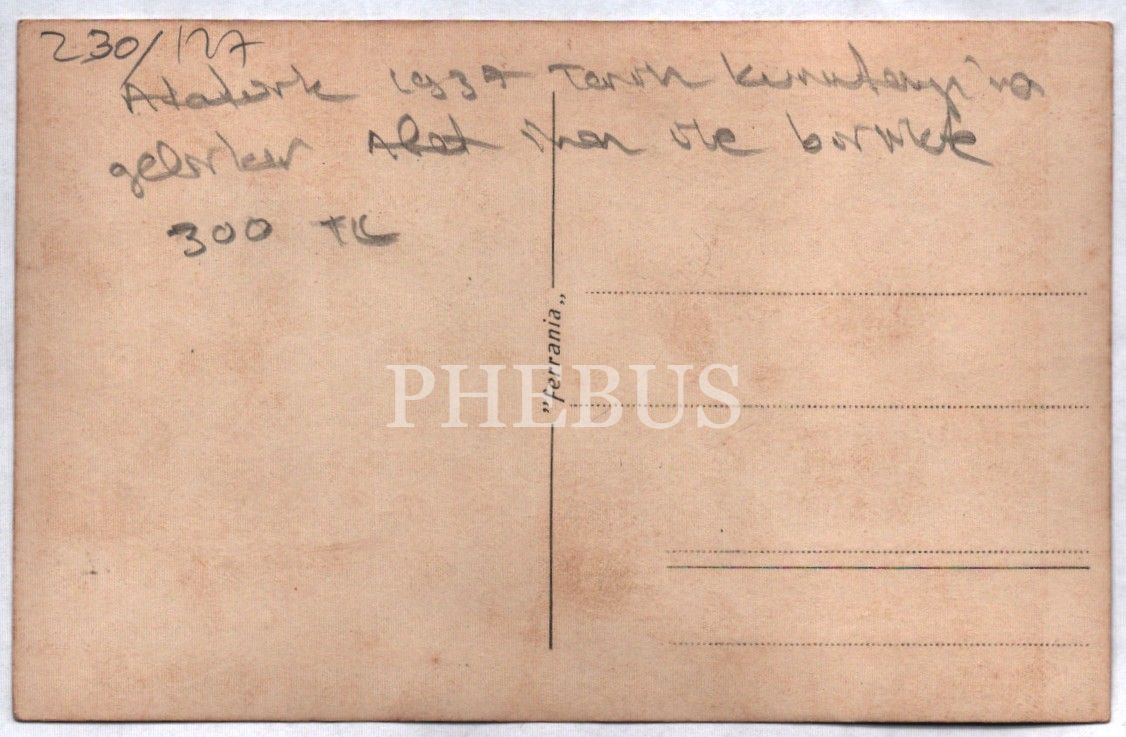 230/127
Atatürk 1937 Tarih kurultayı'na
gelirken Afet İnan ile birlikte
300 TL
"ferrania"
PHEBUS